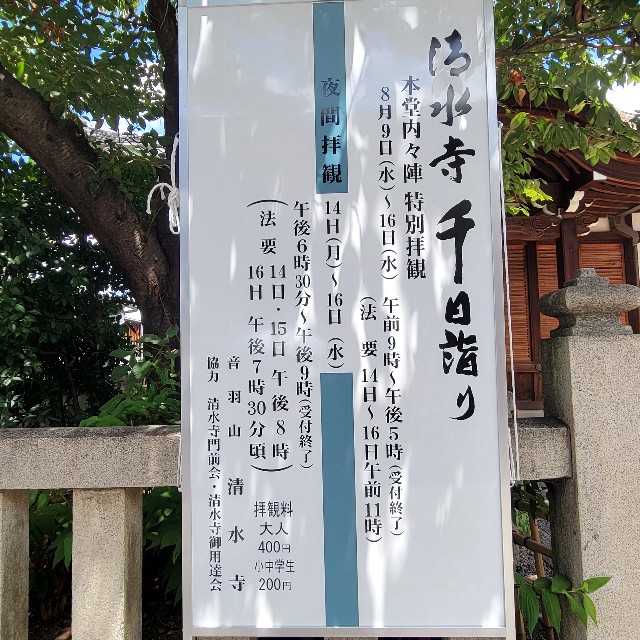 清水寺 千日詣り
本堂内々陣 特別拝観
8月9日(水)〜16日(水)
午前9時〜午後5時(受付終了)
(法要 14日〜16日午前11時)
夜間拝観
14日(月)〜16日(水)
午後6時30分〜午後9時(受付終了)
(法要 14日・15日 午後8時
16日 午後7時30分頃)
拝観料
大人
400円
小中学生
200円
音羽山 清水寺
協力 清水寺門前会・清水寺御用達会